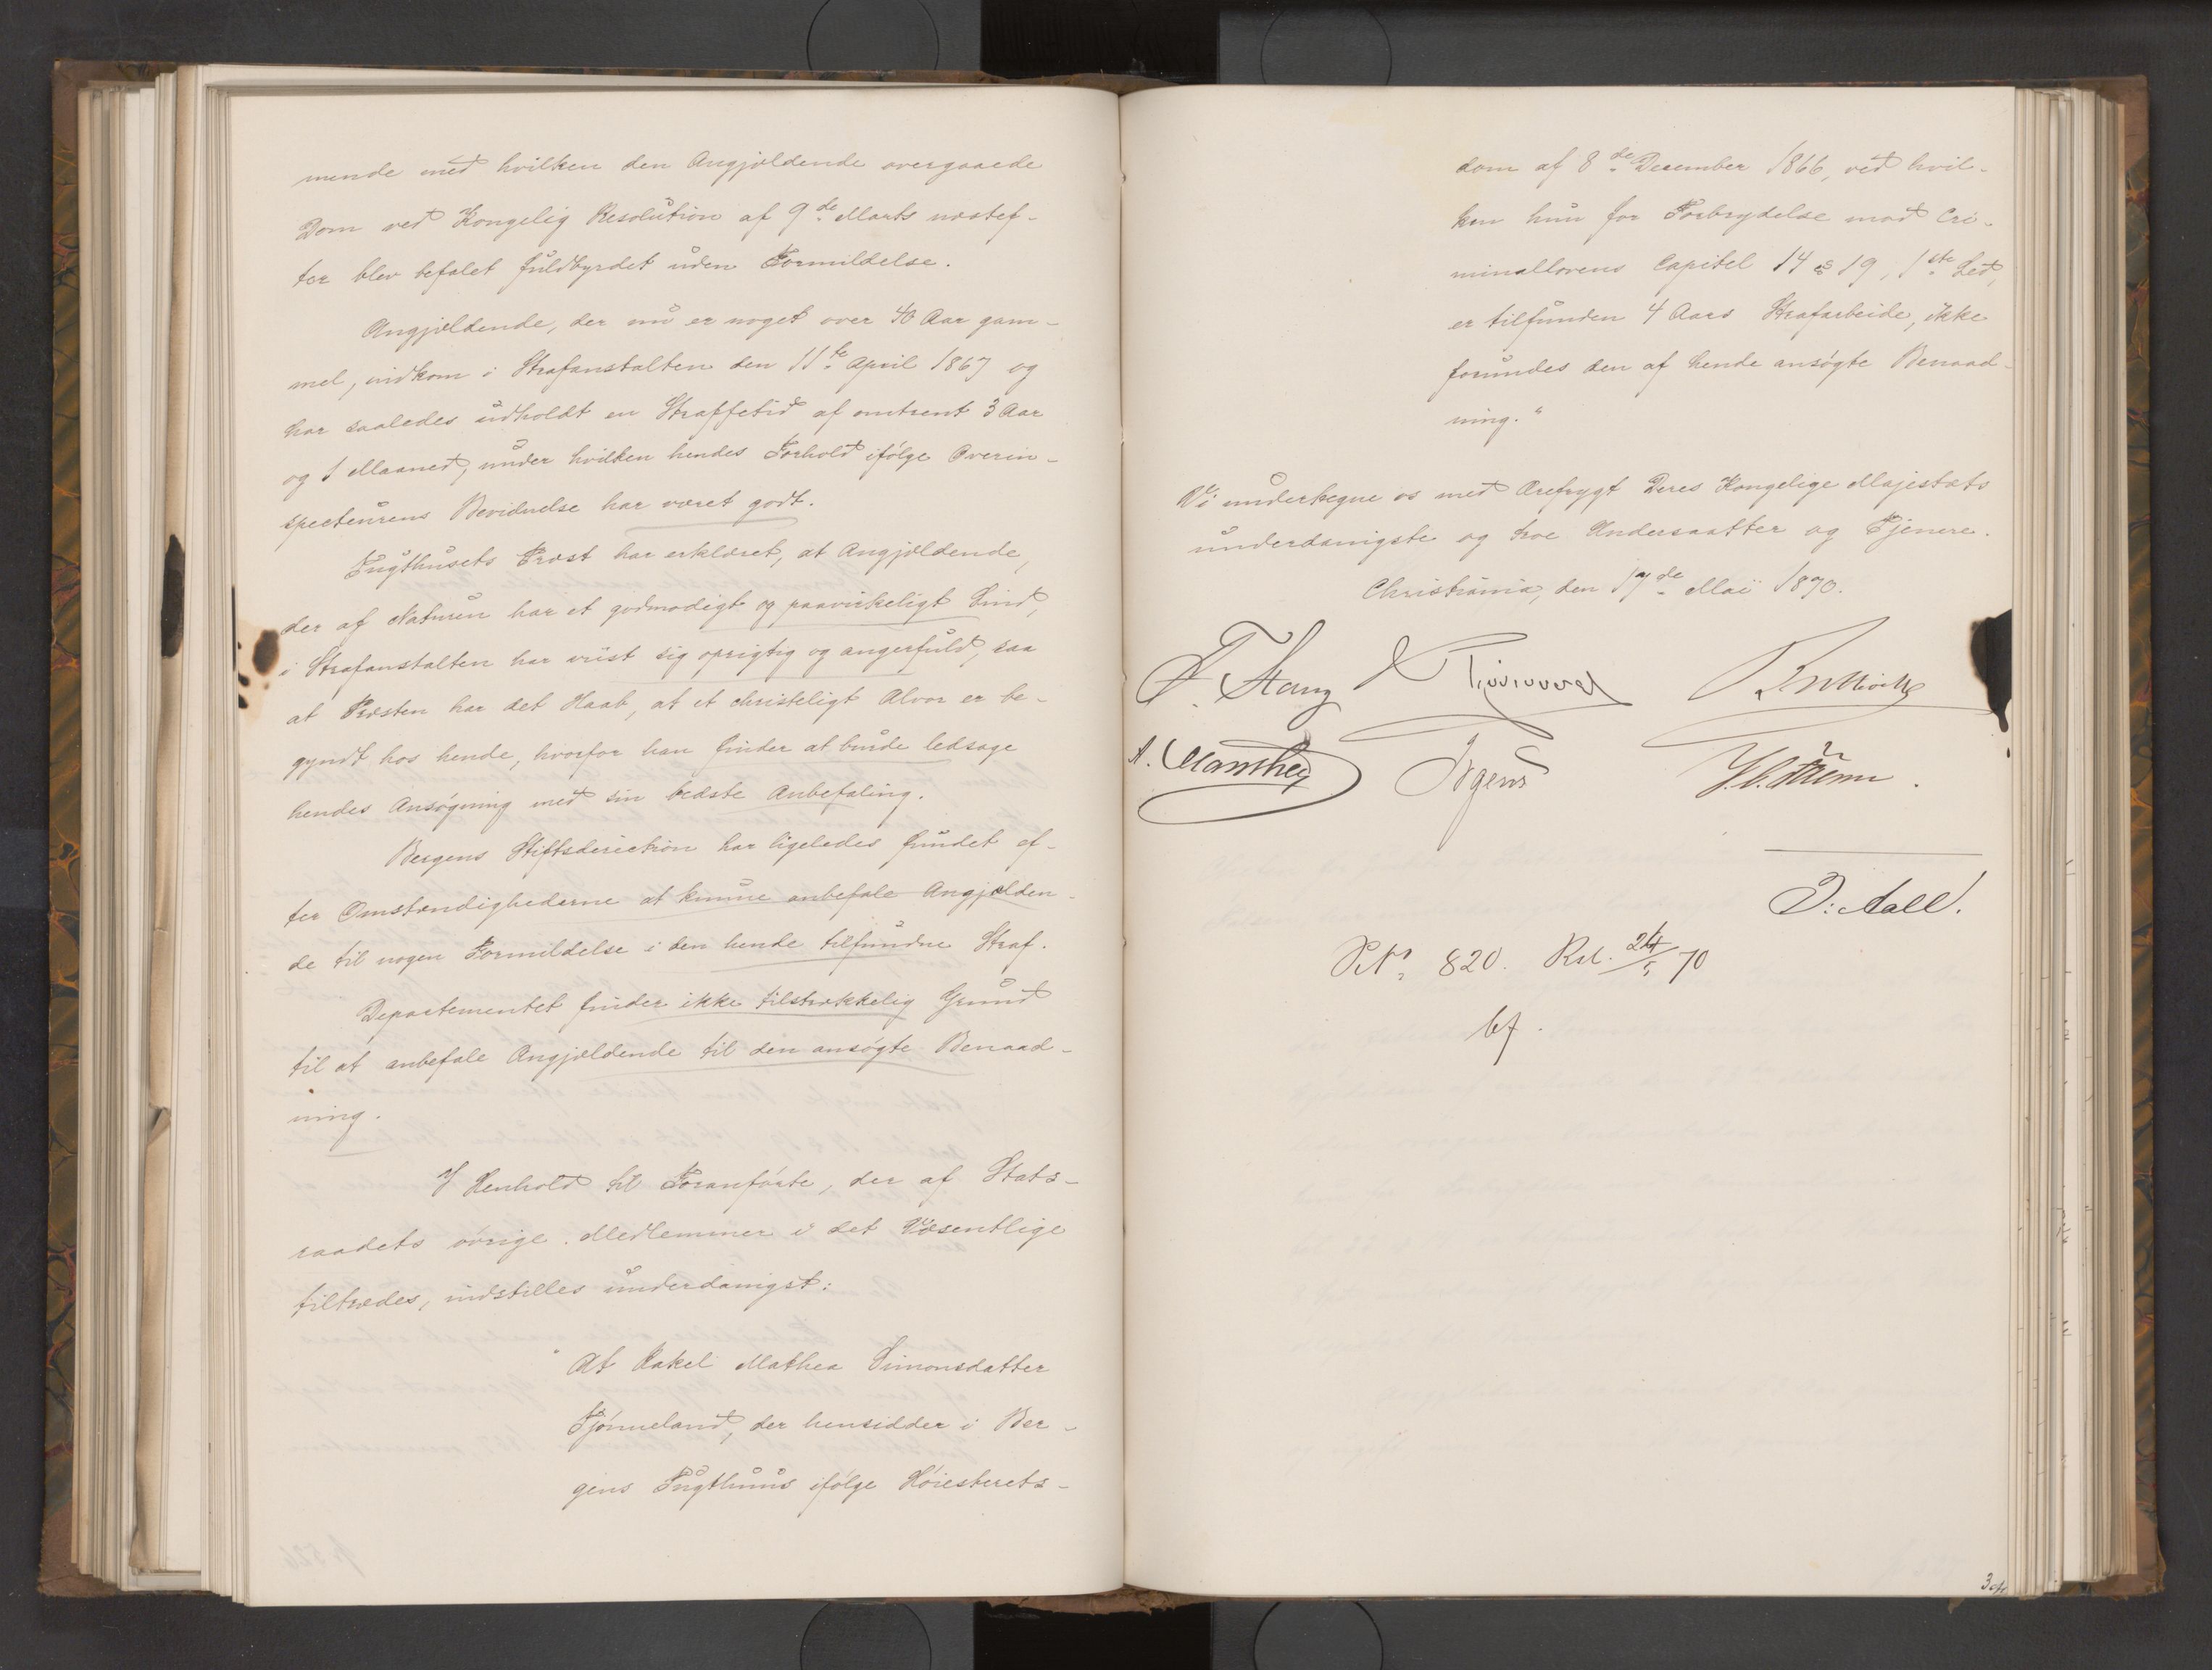 mende med hvilken den Angjældende overgaaede
Dom ved Kongelig Resolution af 9de Marts næstef-
ter blev befalet fuldbyrdet uden Formildelse.
Angjældende, der nu er noget over 40 Aar gam-
mel, indkom i Strafanstalten den 11te April 1867 og
har saaledes udholdt en Straffetid af omtrent 3 Aar
og 1 Maaned, under hvilken hendes Forhold ifølge Overin-
specteurens Bevidnelse har været godt.
Tugthusets Præst har erklæret, at Angjældende,
der af Naturen har et godmodigt og paavirkeligt Sind,
i Strafanstalten har viist sig oprigtig og angerfuld, saa
at Præsten har det Haab, at et christeligt Alvor er be-
gyndt hos hende, hvorfor han finder at burde ledsage
hendes Ansøgning med sin bedste Anbefaling.
Bergens Stiftsdirection har ligeledes fundet ef-
ter Omstændighederne at kunne anbefale Angjælden-
de til nogen Formildelse i den hende tilfundne Straf.
Departementet finder ikke tilstrækkelig Grund
til at anbefale Angjældende til den ansøgte Benaad-
ning.
I Henhold til Foranførte, der af Stats-
raadets øvrige Medlemmer i det Væsentlige
tiltrædes, indstilles underdanigst:
"At Rakel Mathea Simonsdatter
Tjønneland, der hensidder i Ber-
gens Tugthuus ifølge Høiesterets-
dom af 8de December 1866, ved hvil-
ken hun for Forbrydelse mod Cri-
minallovens Capitel 14 § 19, 1ste Led,
er tilfunden 4 Aars Strafarbeide, ikke
forundes den af hende ansøgte Benaad-
ning."
Vi undertegne os med Ærefrygt Deres Kongelige Majestæts
underdanigste og troe Undersaatter og Tjenere.
Christiania, den 17de Mai 1870.
F. Stang
A. Manthey Irgens
D: Aall.
No 820. Rsl. 24/5 70
bf.